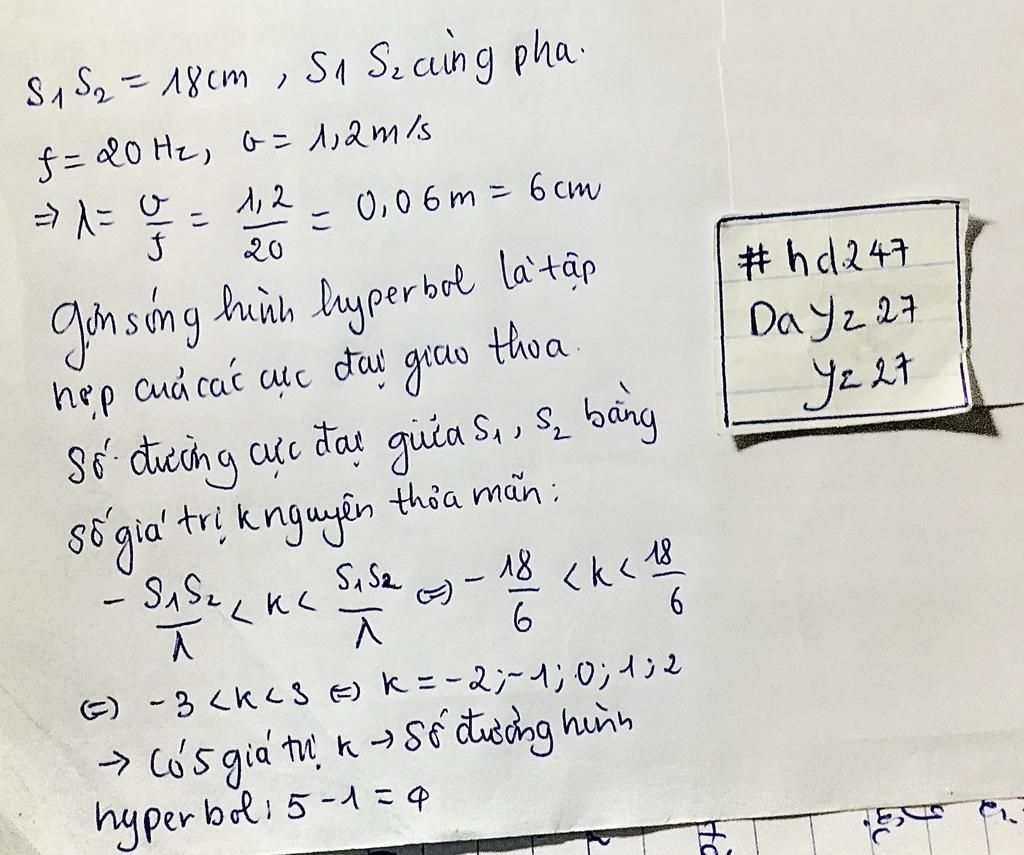 S1 S2 = 18cm , S1 S2 cùng pha.
f = 20 Hz, v = 1,2m/s
⇒ λ = v/f = 1,2/20 = 0,06m = 6cm
gợn sóng hình hyperbol là tập
hợp cuả các cực đại giao thoa.
Số đường cực đại giữa S1, S2 bằng
số giá trị k nguyên thỏa mãn:
- S1S2/λ < k < S1S2/λ ⇔ - 18/6 < k < 18/6
⇔ -3 < k < 3 ⇔ k = -2; -1; 0; 1; 2
→ Có 5 giá trị k → Số đường hình
hyperbol: 5 - 1 = 4
# hd247
Da Yz 27
Yz 27